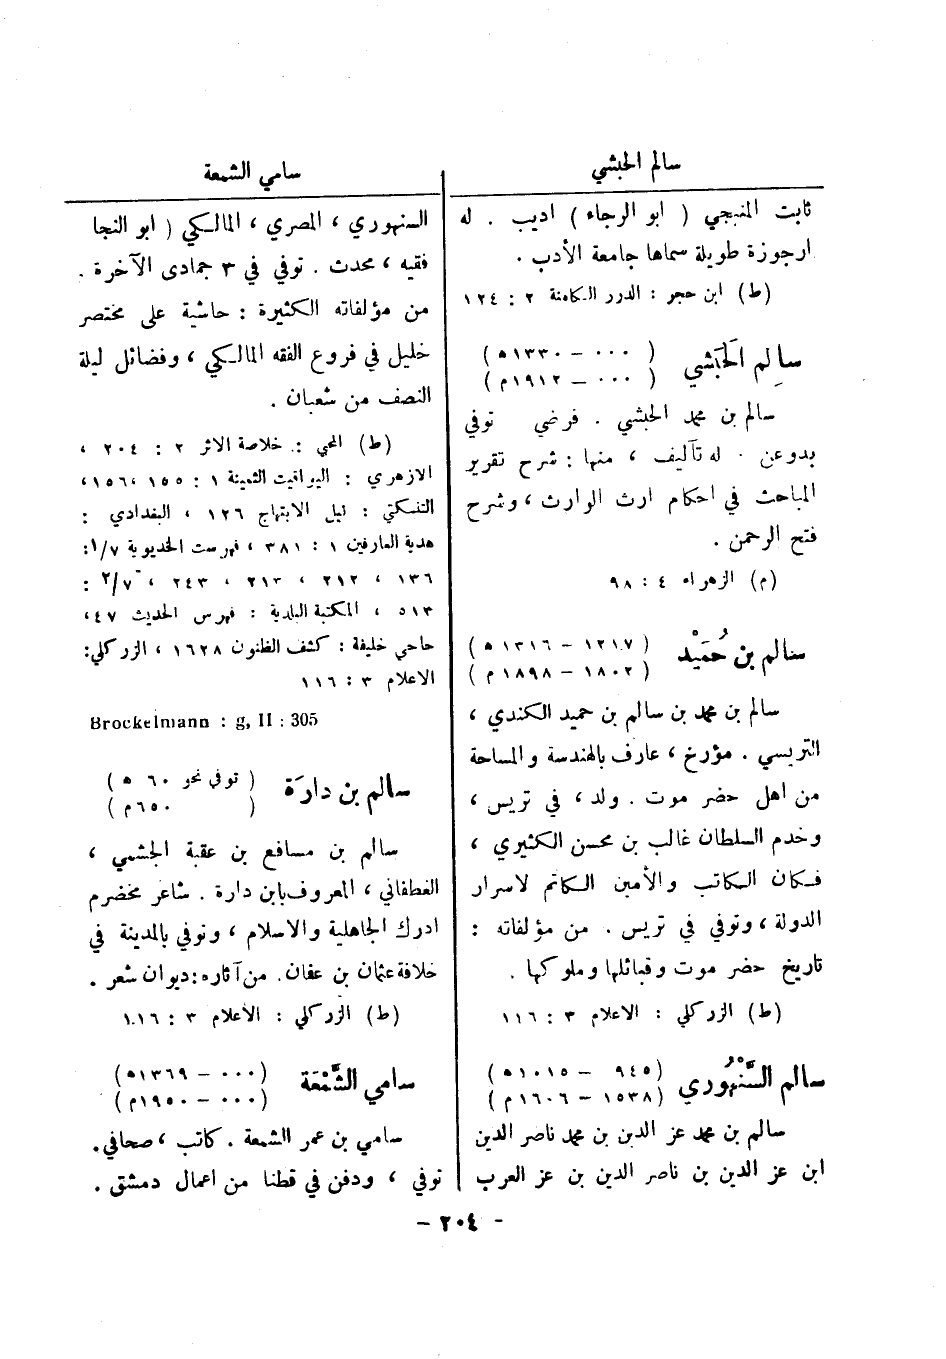 سالم الحبشي
ثابت المنبجي ( ابو الرجاء ) اديب . له
ارجوزة طويلة سماها جامعة الأدب .
(ط) ابن حجر : الدرر الكامنة ٢ : ١٢٤
سالم الَحبَشي (٠٠٠ – ١٣٣٠ ه)
(٠٠٠ – ١٩١٢ م)
سالم بن محمد الحبشي . فرضي توفي
بدوعن . له تآليف ، منها : شرح تقرير
المباحث في احكام ارث الوارث ، وشرح
فتح الرحمن .
(م) الزهراء ٤ : ٩٨
سالم بن حُمَيْد (١٢١٧ – ١٣١٦ ه)
(١٨٠٢ – ١٨٩٨ م)
سالم بن محمد بن سالم بن حميد الكندي ،
التريسي . مؤرخ ، عارف بالهندسة والمساحة
من اهل حضر موت . ولد ، في تريس ،
وخدم السلطان غالب بن محسن الكثيري ،
فكان الكاتب والأمين الكاتم لاسرار
الدولة ، وتوفي في تريس . من مؤلفاته :
تاريخ حضر موت وقبائلها وملوكها .
(ط) الزركلي : الاعلام ٣ : ١١٦
سالم السَّنْهُوري (٩٤٥ – ١٠١٥ ه)
(١٥٣٨ – ١٦٠٦ م)
سالم بن محمد عز الدين بن محمد ناصر الدين
ابن عز الدين بن ناصر الدين بن عز العرب
سامي الشمعة
السنهوري ، المصري ، المالكي ( ابو النجا
فقيه ، محدث . توفي في ٣ جمادى الآخرة .
من مؤلفاته الكثيرة : حاشية على مختصر
خليل في فروع الفقه المالكي ، وفضائل ليلة
النصف من شعبان .
(ط) المحبي : خلاصة الاثر ٢ : ٢٠٤ ،
الازهري : اليواقيت الثمينة ١ : ١٥٥ ، ١٥٦ ،
التنبكتي : نيل الابتهاج ١٢٦ ، البغدادي :
هدية العارفين ١ : ٣٨١ ، فهرست الخديوية ٧/١:
١٣٦ ، ٢١٢ ، ٢١٣ ، ٢٤٣ ، ٢/٧ :
٥١٣ ، المكتبة البلدية : فهرس الحديث ٤٧ ،
حاجي خليفة : كشف الظنون ١٦٢٨ ، الزركلي:
الاعلام ٣ : ١١٦
Brockelmann : g, II : 305
سالم بن دارَة (توفي نحو ٦٠ ه)
( ٦٥٠ م)
سالم بن مسافع بن عقبة الجشمي ،
الغطفاني ، المعروف بابن دارة . شاعر مخضرم
ادرك الجاهلية والاسلام ، وتوفي بالمدينة في
خلافة عثمان بن عفان. من آثاره: ديوان شعر .
(ط) الزركلي : الأعلام ٣ : ١١٦
سامي الشَّمْعَة (٠٠٠ – ١٣٦٩ ه)
(٠٠٠ – ١٩٥٠ م)
سامي بن عمر الشمعة . كاتب ، صحافي.
توفي ، ودفن في قطنا من اعمال دمشق .
– ٢٠٤ –